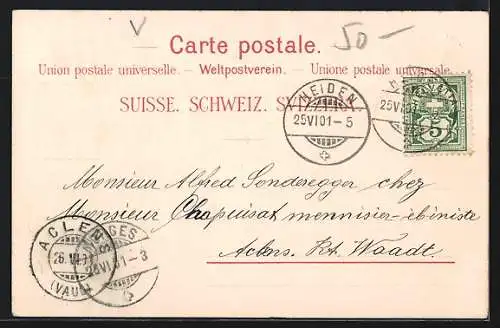 V
50 -
Carte postale.
Union postale universelle. – Weltpostverein. – Unione postale universale.
SUISSE. SCHWEIZ. SVIZZERA.
HEIDEN
25 VI 01 – 5
HEIDEN
25 VI
5
Monsieur Alfred Sonderegger chez
Monsieur Chapuisat mennisier-ébiniste
Aclens. Kt. Waadt.
ACLENS
26. VI.
(VAUD)
MORGES
26 VI 01 – 3